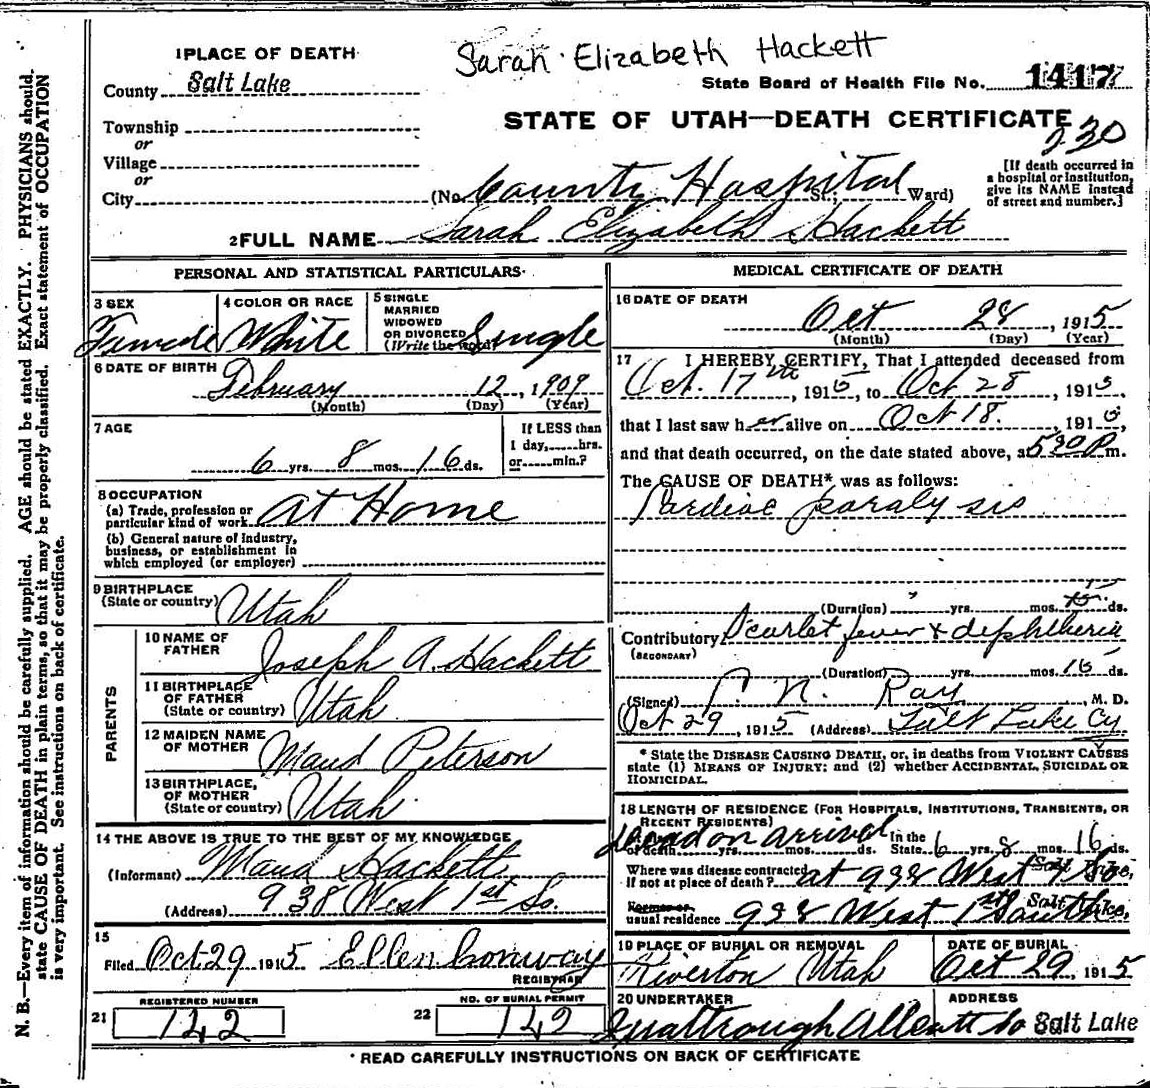 Sarah Elizabeth Hackett
1 PLACE OF DEATH
County Salt Lake
State Board of Health File No. 1417
Township
or
Village
or
City
STATE OF UTAH—DEATH CERTIFICATE
230
(No. County Hospital St.; Ward)
[If death occurred in
a hospital or institution,
give its NAME instead
of street and number.]
2 FULL NAME Sarah Elizabeth Hackett
PERSONAL AND STATISTICAL PARTICULARS
3 SEX
Female
4 COLOR OR RACE
White
5 SINGLE
MARRIED
WIDOWED
OR DIVORCED
(Write the word) Single
6 DATE OF BIRTH
February 12, 1909
(Month) (Day) (Year)
7 AGE
6 yrs. 8 mos. 16 ds.
If LESS than
1 day, hrs.
or min.?
8 OCCUPATION
(a) Trade, profession or
particular kind of work At Home
(b) General nature of industry,
business, or establishment in
which employed (or employer)
9 BIRTHPLACE
(State or country) Utah
PARENTS
10 NAME OF
FATHER Joseph A. Hackett
11 BIRTHPLACE
OF FATHER
(State or country) Utah
12 MAIDEN NAME
OF MOTHER Maud Peterson
13 BIRTHPLACE,
OF MOTHER
(State or country) Utah
14 THE ABOVE IS TRUE TO THE BEST OF MY KNOWLEDGE
(Informant) Maud Hackett
(Address) 938 West 1st So.
15
Filed Oct 29 1915 Ellen Conway
REGISTRAR
REGISTERED NUMBER
21 142
NO. OF BURIAL PERMIT
22 142
MEDICAL CERTIFICATE OF DEATH
16 DATE OF DEATH
Oct 28, 1915
(Month) (Day) (Year)
17 I HEREBY CERTIFY, That I attended deceased from
Oct. 17th, 1915, to Oct 28, 1915
that I last saw her alive on Oct 18., 1915,
and that death occurred, on the date stated above, at 530 P m.
The CAUSE OF DEATH* was as follows:
Cardiac paralysis
(Duration) yrs. mos. 15 ds.
Contributory Scarlet fever & diphtheria
(SECONDARY)
(Duration) yrs. mos. 15 ds.
(Signed) N. Ray, M. D.
Oct 29, 1915 (Address) Salt Lake Cy
* State the DISEASE CAUSING DEATH, or, in deaths from VIOLENT CAUSES
state (1) MEANS OF INJURY; and (2) whether ACCIDENTAL, SUICIDAL OR
HOMICIDAL.
18 LENGTH OF RESIDENCE (FOR HOSPITALS, INSTITUTIONS, TRANSIENTS, OR
RECENT RESIDENTS)
dead on arrival In the
of death yrs. mos. ds. State 6 yrs. 8 mos. 16 ds.
Where was disease contracted
if not at place of death? at 938 West 1 So Salt Lake,
Former or
usual residence 938 West 1st South Salt Lake,
19 PLACE OF BURIAL OR REMOVAL
Riverton Utah
DATE OF BURIAL
Oct 29, 1915
20 UNDERTAKER
ADDRESS
Salt Lake
* READ CAREFULLY INSTRUCTIONS ON BACK OF CERTIFICATE
N. B.—Every item of information should be carefully supplied. AGE should be stated EXACTLY. PHYSICIANS should
state CAUSE OF DEATH in plain terms, so that it may be properly classified. Exact statement of OCCUPATION
is very important. See instructions on back of certificate.